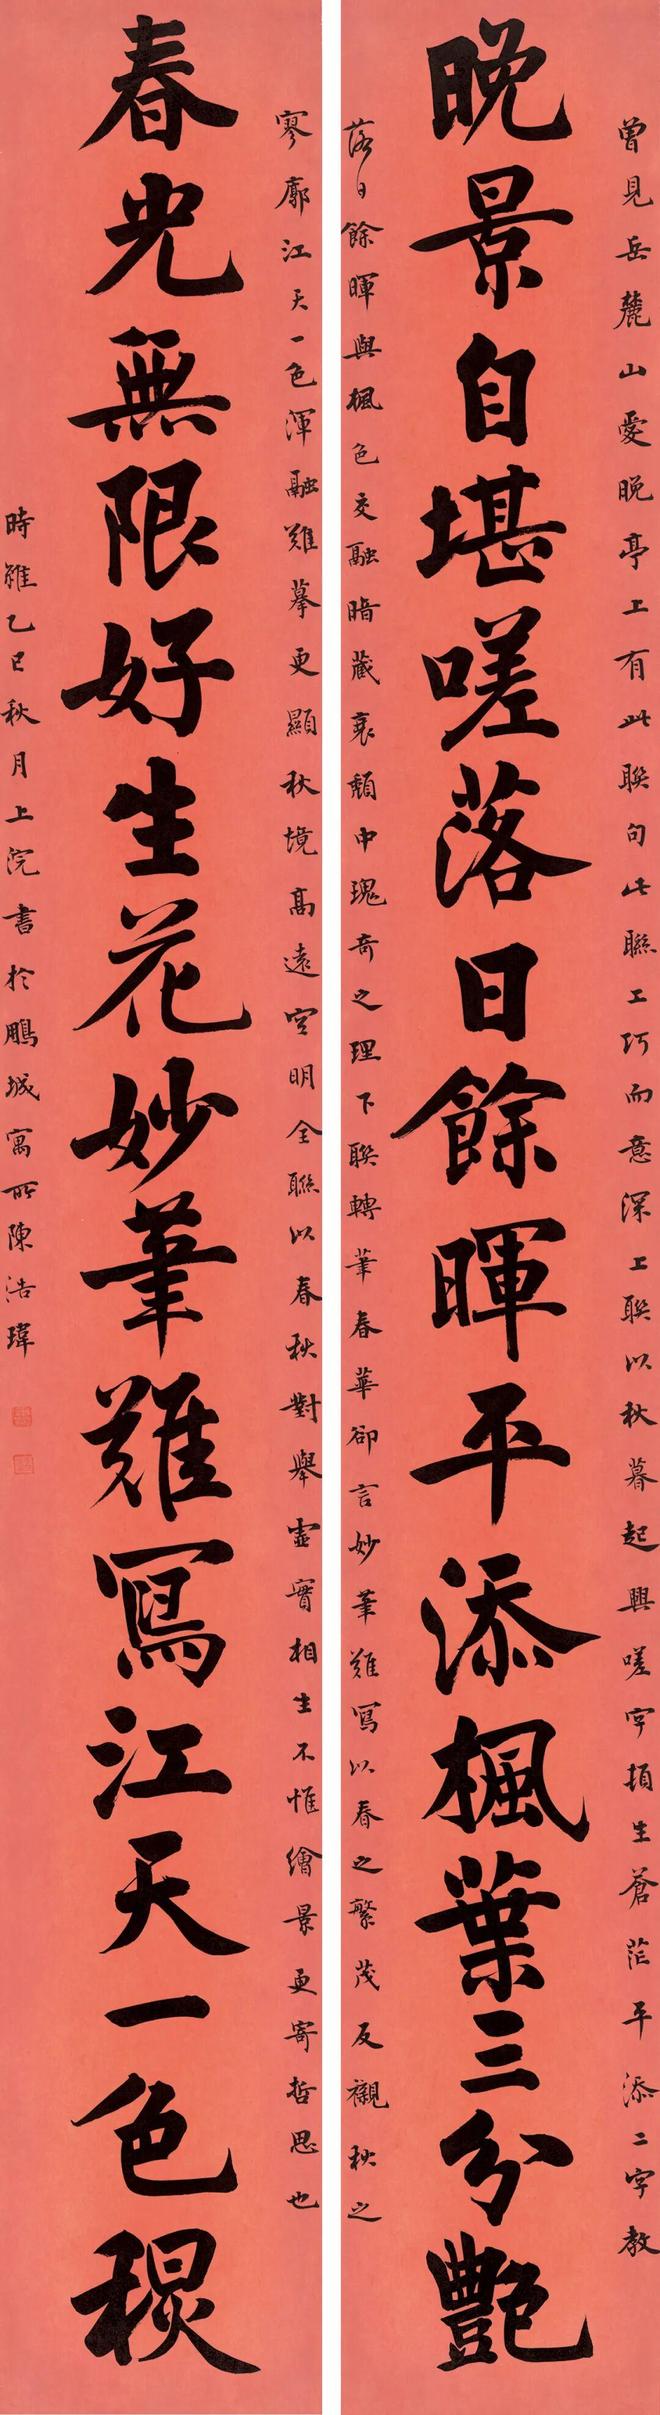 曾見岳麓山愛晚亭上有此聯句此聯工巧而意深上聯以秋暮起興嗟字頓生蒼茫平添二字教
晚景自堪嗟落日餘暉平添楓葉三分艷
落日餘暉與楓色交融暗藏衰頹中瑰奇之理下聯轉筆春華卻言妙筆難寫以春之繁茂反襯秋之
寥廓江天一色渾融難摹更顯秋境高遠空明全聯以春秋對舉虛實相生不惟繪景更寄哲思也
春光無限好生花妙筆難寫江天一色秋
時維乙巳秋月上浣書於鵬城寓所陳浩瑋